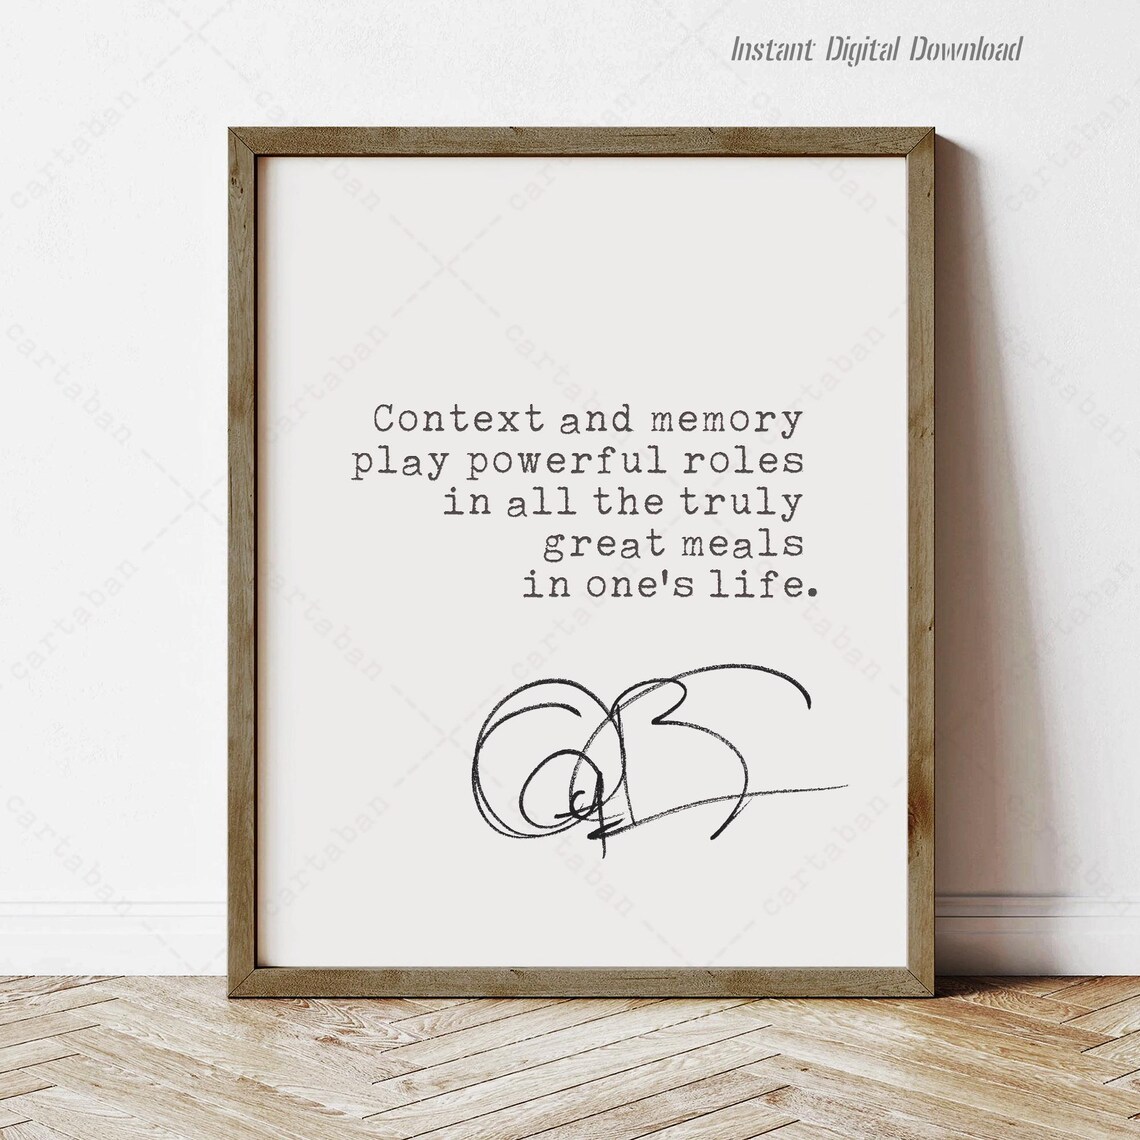 Instant Digital Download
Context and memory
play powerful roles
in all the truly
great meals
in one's life.
cartaban